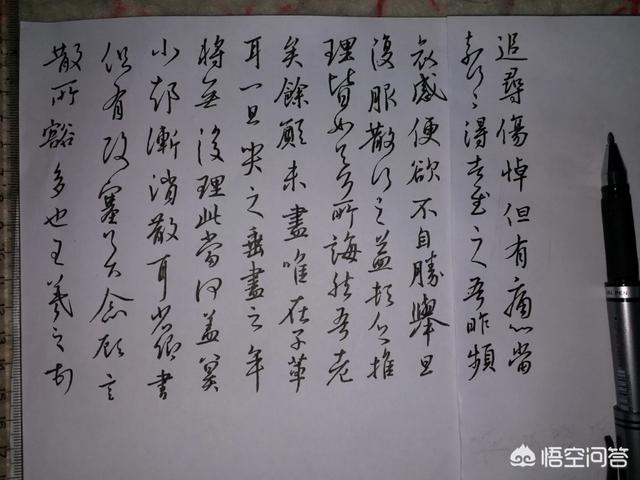 追尋傷悼但有痛心當
奈何々得告慰之吾昨頻
哀感便欲不自勝舉旦
復服散行之益頓乏推
理皆如足下所誨然吾老
矣餘願未盡唯在子輩
耳一旦哭之垂盡之年
將無復理此當何益冀
小却漸消散耳省卿書
但有酸塞足下念顧言
散所豁多也王羲之
悟空问答